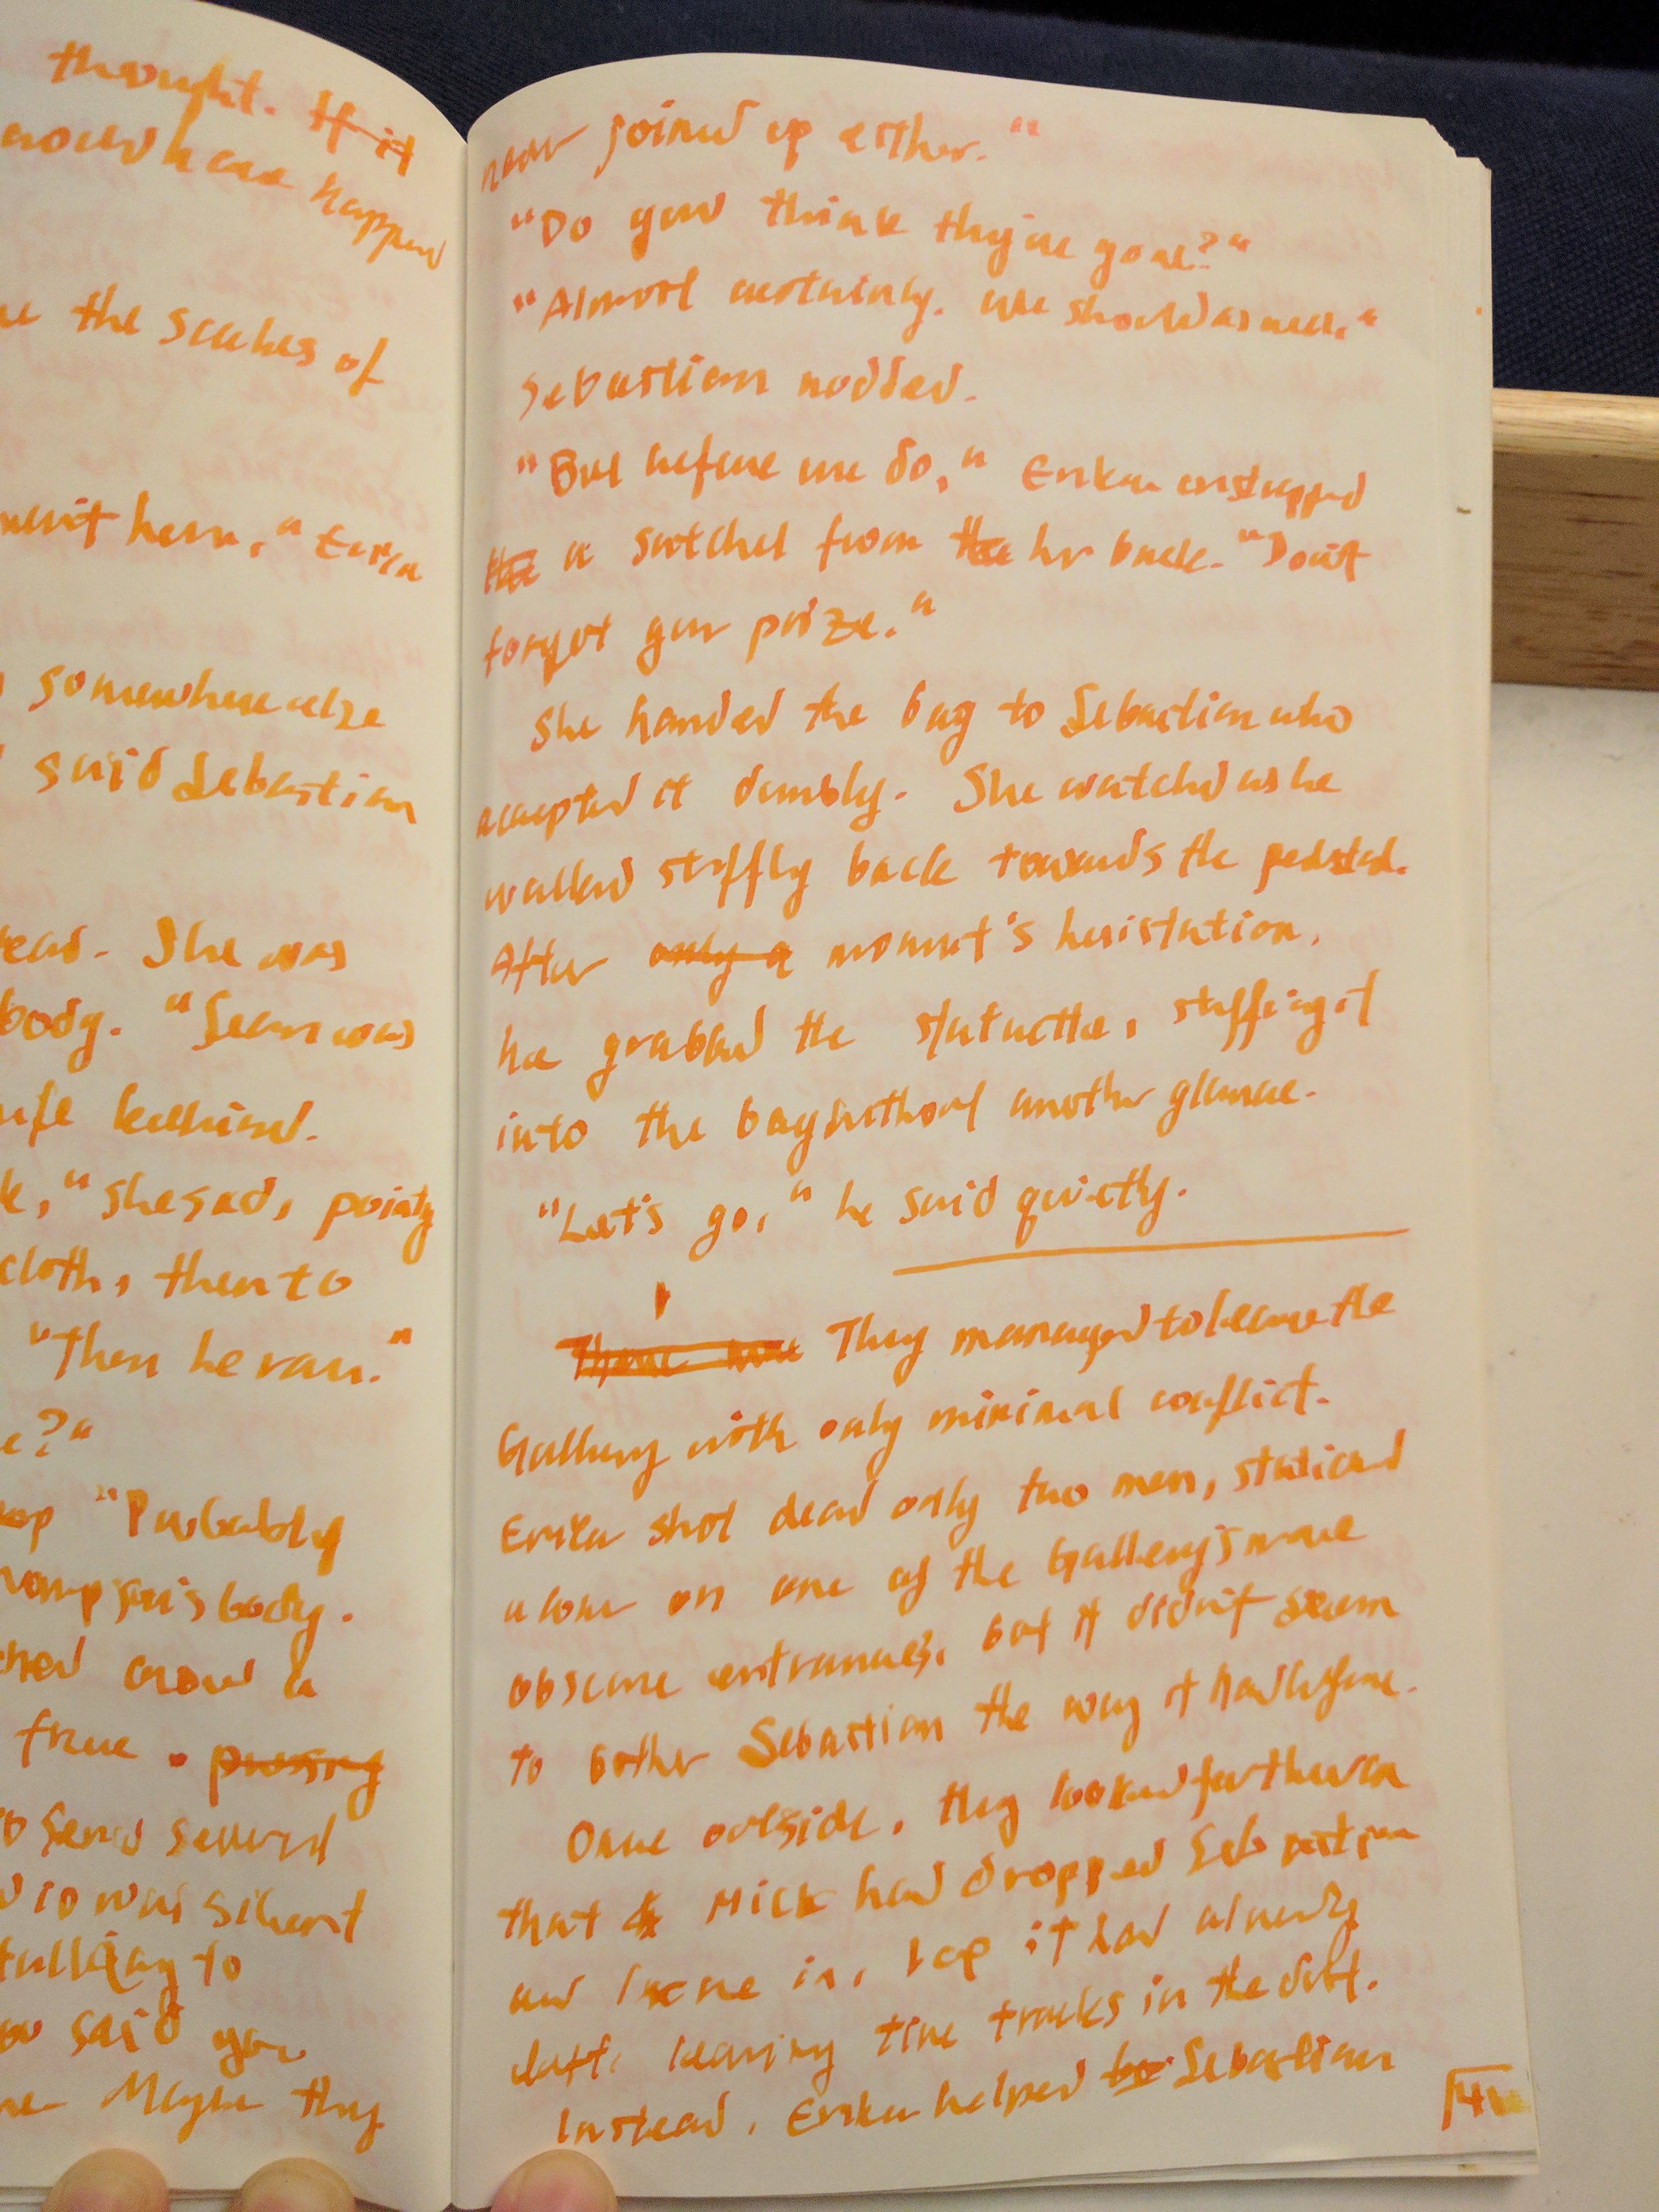 thought. If it
would have happened
the scales of
went here," Erica
somewhere else
said Sebastian
She was
body. "Sean was
she said, pointing
cloth, then to
"Then he ran."
?"
"Probably
body.
a
true. prosing
send several
was silent
talking to
said you
Maybe they
never joined up either."
"Do you think they're gone?"
"Almost certainly. We should as well."
Sebastian nodded.
"But before we do," Erika unstrapped
the a satchel from the her back. "Don't
forget your prize."
She handed the bag to Sebastian who
accepted it dumbly. She watched as he
walked stiffly back towards the pedestal.
After only a moment's hesistation,
he grabbed the statuette, stuffing it
into the bag without another glance.
"Let's go," he said quietly.
There were They managed to leave the
Gallery with only minimal conflict.
Erika shot dead only two men, stationed
alone on one of the Gallery's more
obscure entrances, but it didn't seem
to bother Sebastian the way it had before.
Once outside, they looked for the van
that Mick had dropped Sebastian
and in, it had already
left, leaving tire tracks in the dirt.
Instead, Erika helped Sebastian